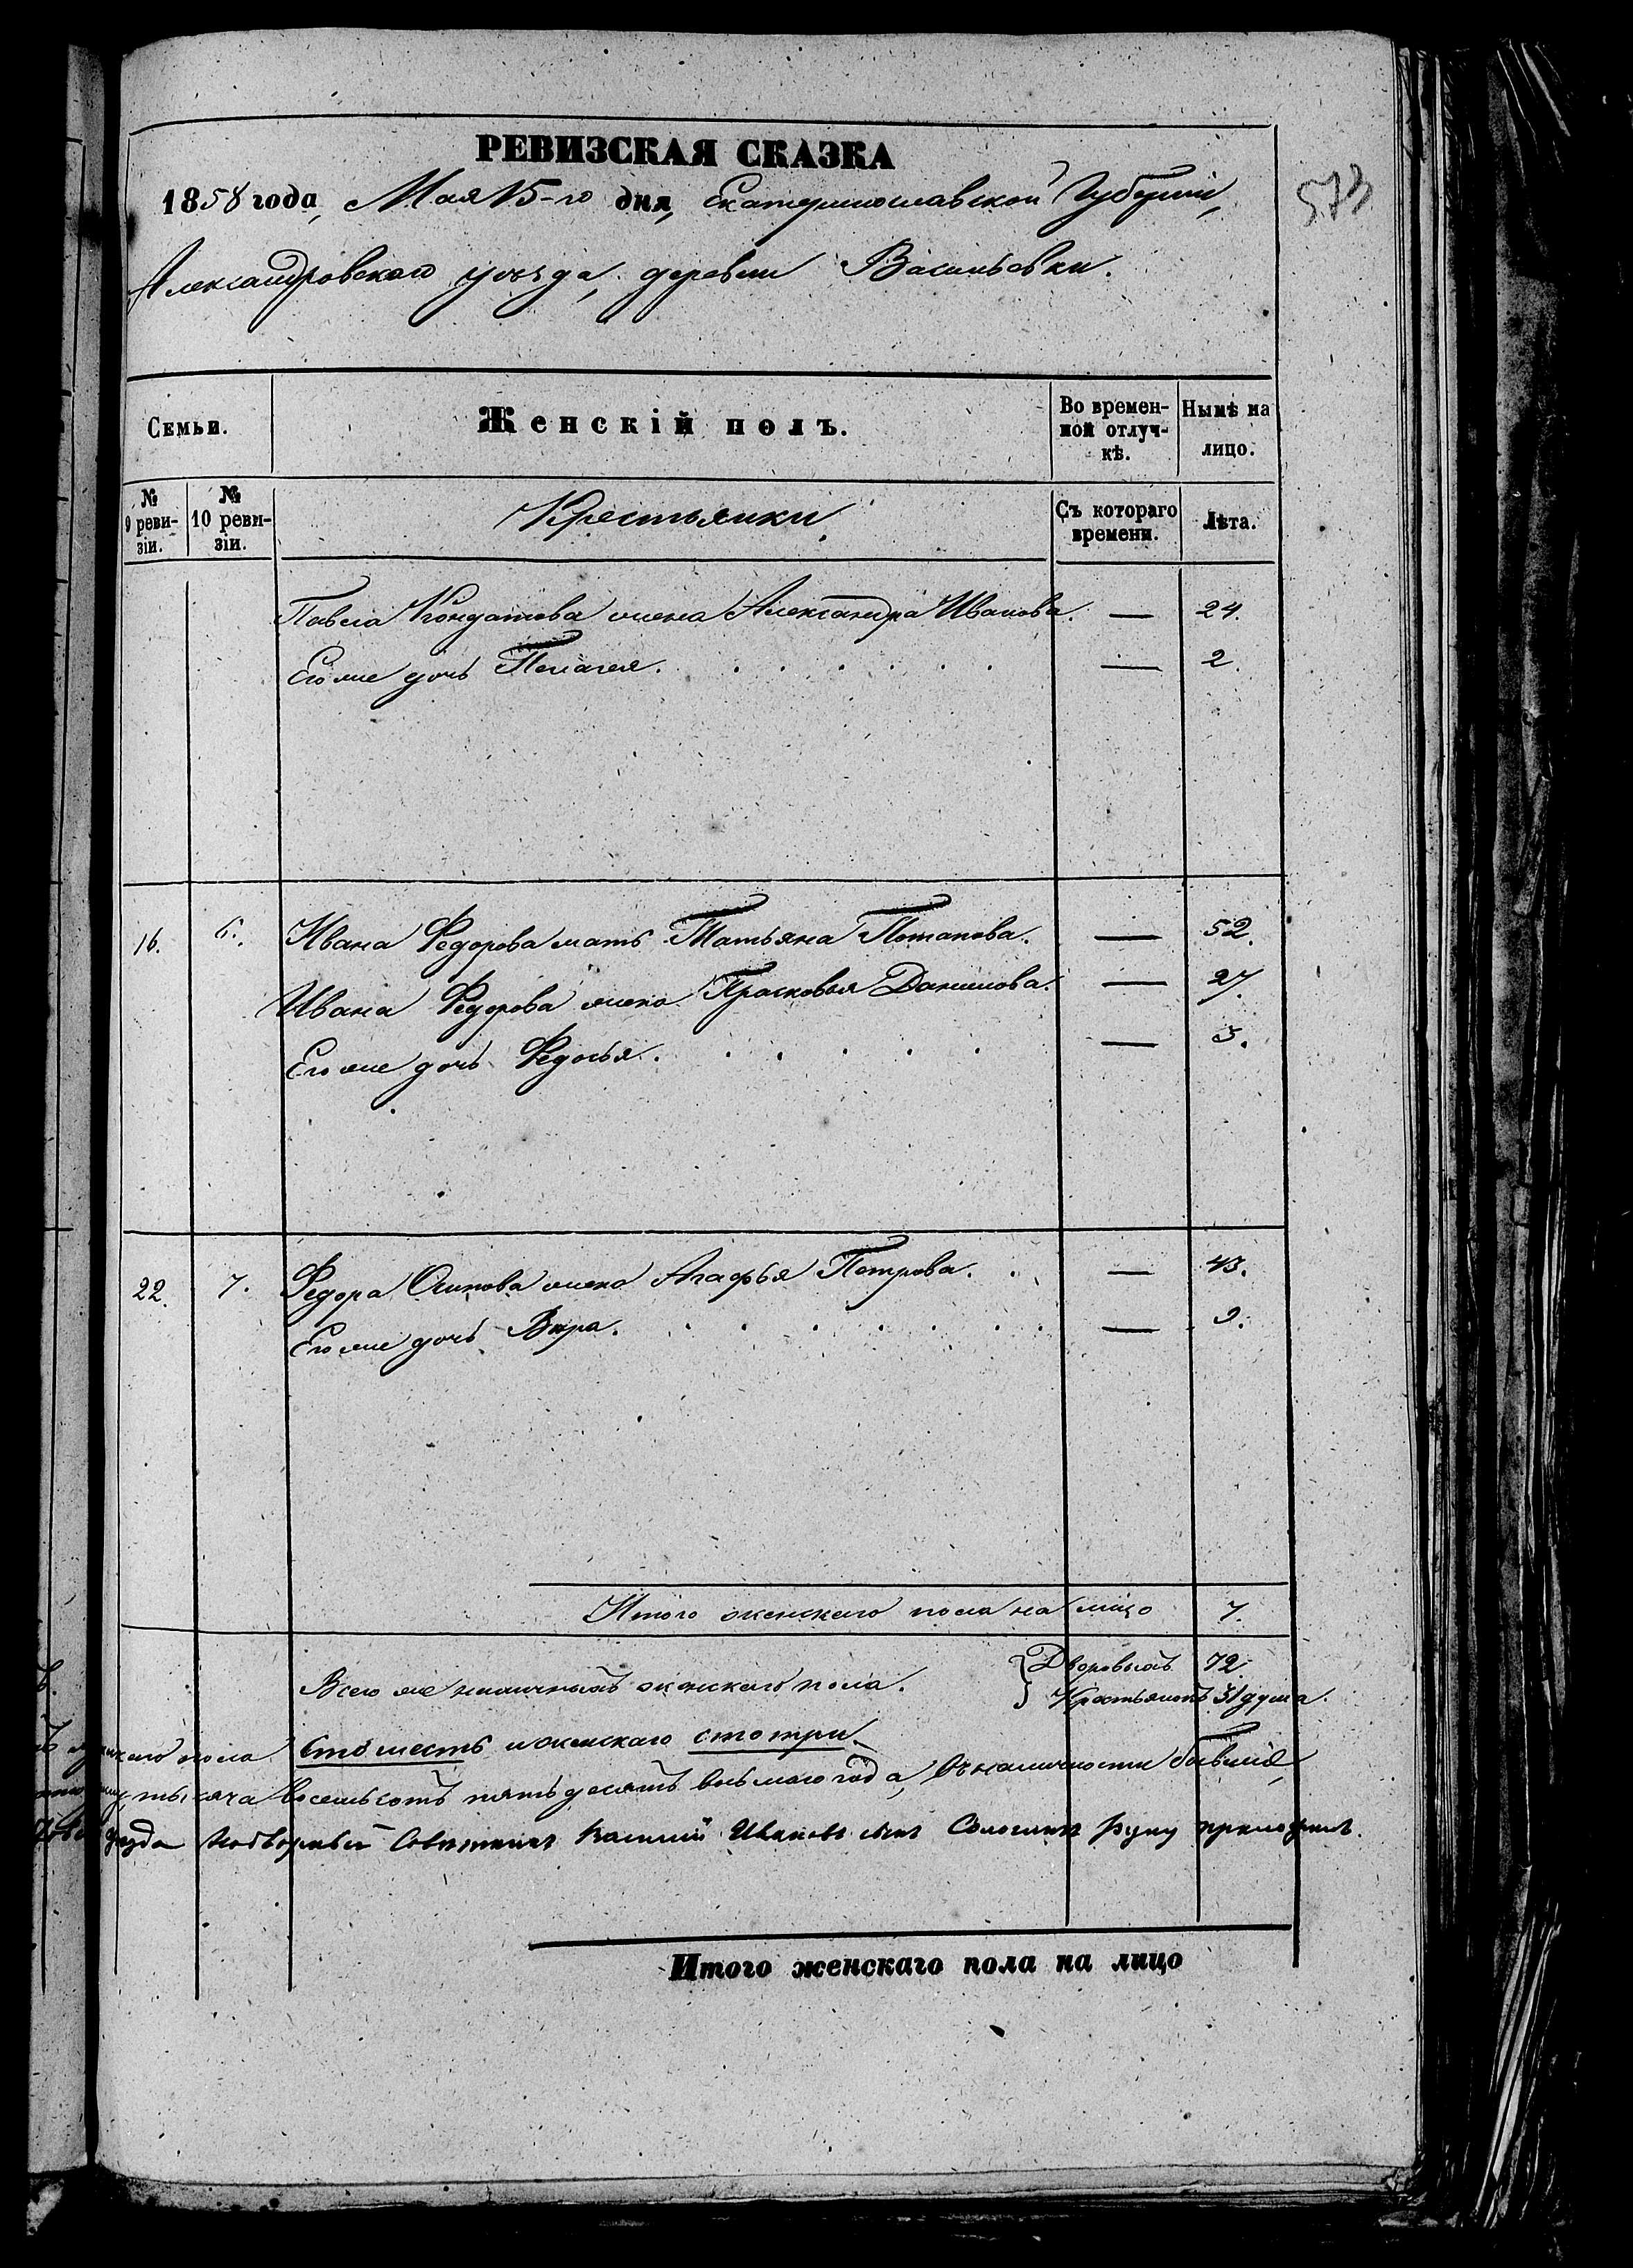 РЕВИЗСКАЯ СКАЗКА
573
1858 года, Мая 15-го дня, Екатеринославской Губерніи,
Александровскаго уѣзда, деревни Васильевки.
Семьи.
Женскій полъ.
Во времен-
ной отлуч-
кѣ.
Нынѣ на
лицо.
№
9 реви-
зіи.
№
10 реви-
зіи.
Крестьянки
Съ котораго
времени.
Лѣта.
Павла Кондатова жена Александра Иванова. — 24.
Его же дочь Пелагея. — 2.
16. 6. Ивана Федорова мать Татьяна Потапова. — 52.
Ивана Федорова жена Прасковья Данилова. — 27.
Его же дочь Федосья. — 5.
22. 7. Федора Осипова жена Агафья Петрова. — 43.
Его же дочь Вѣра. — 9.
Итого женскаго пола на лицо 7.
Всего же наличныхъ женскаго пола. Дворовыхъ 72
Крестьянокъ 31 душа.
пола сто шесть и женскаго сто три.
тысяча восемьсотъ пятьдесятъ восьмаго года, въ наличности бывшія,
уѣзда Надворный Совѣтникъ Василий Ивановъ сынъ руку приложилъ.
Итого женскаго пола на лицо